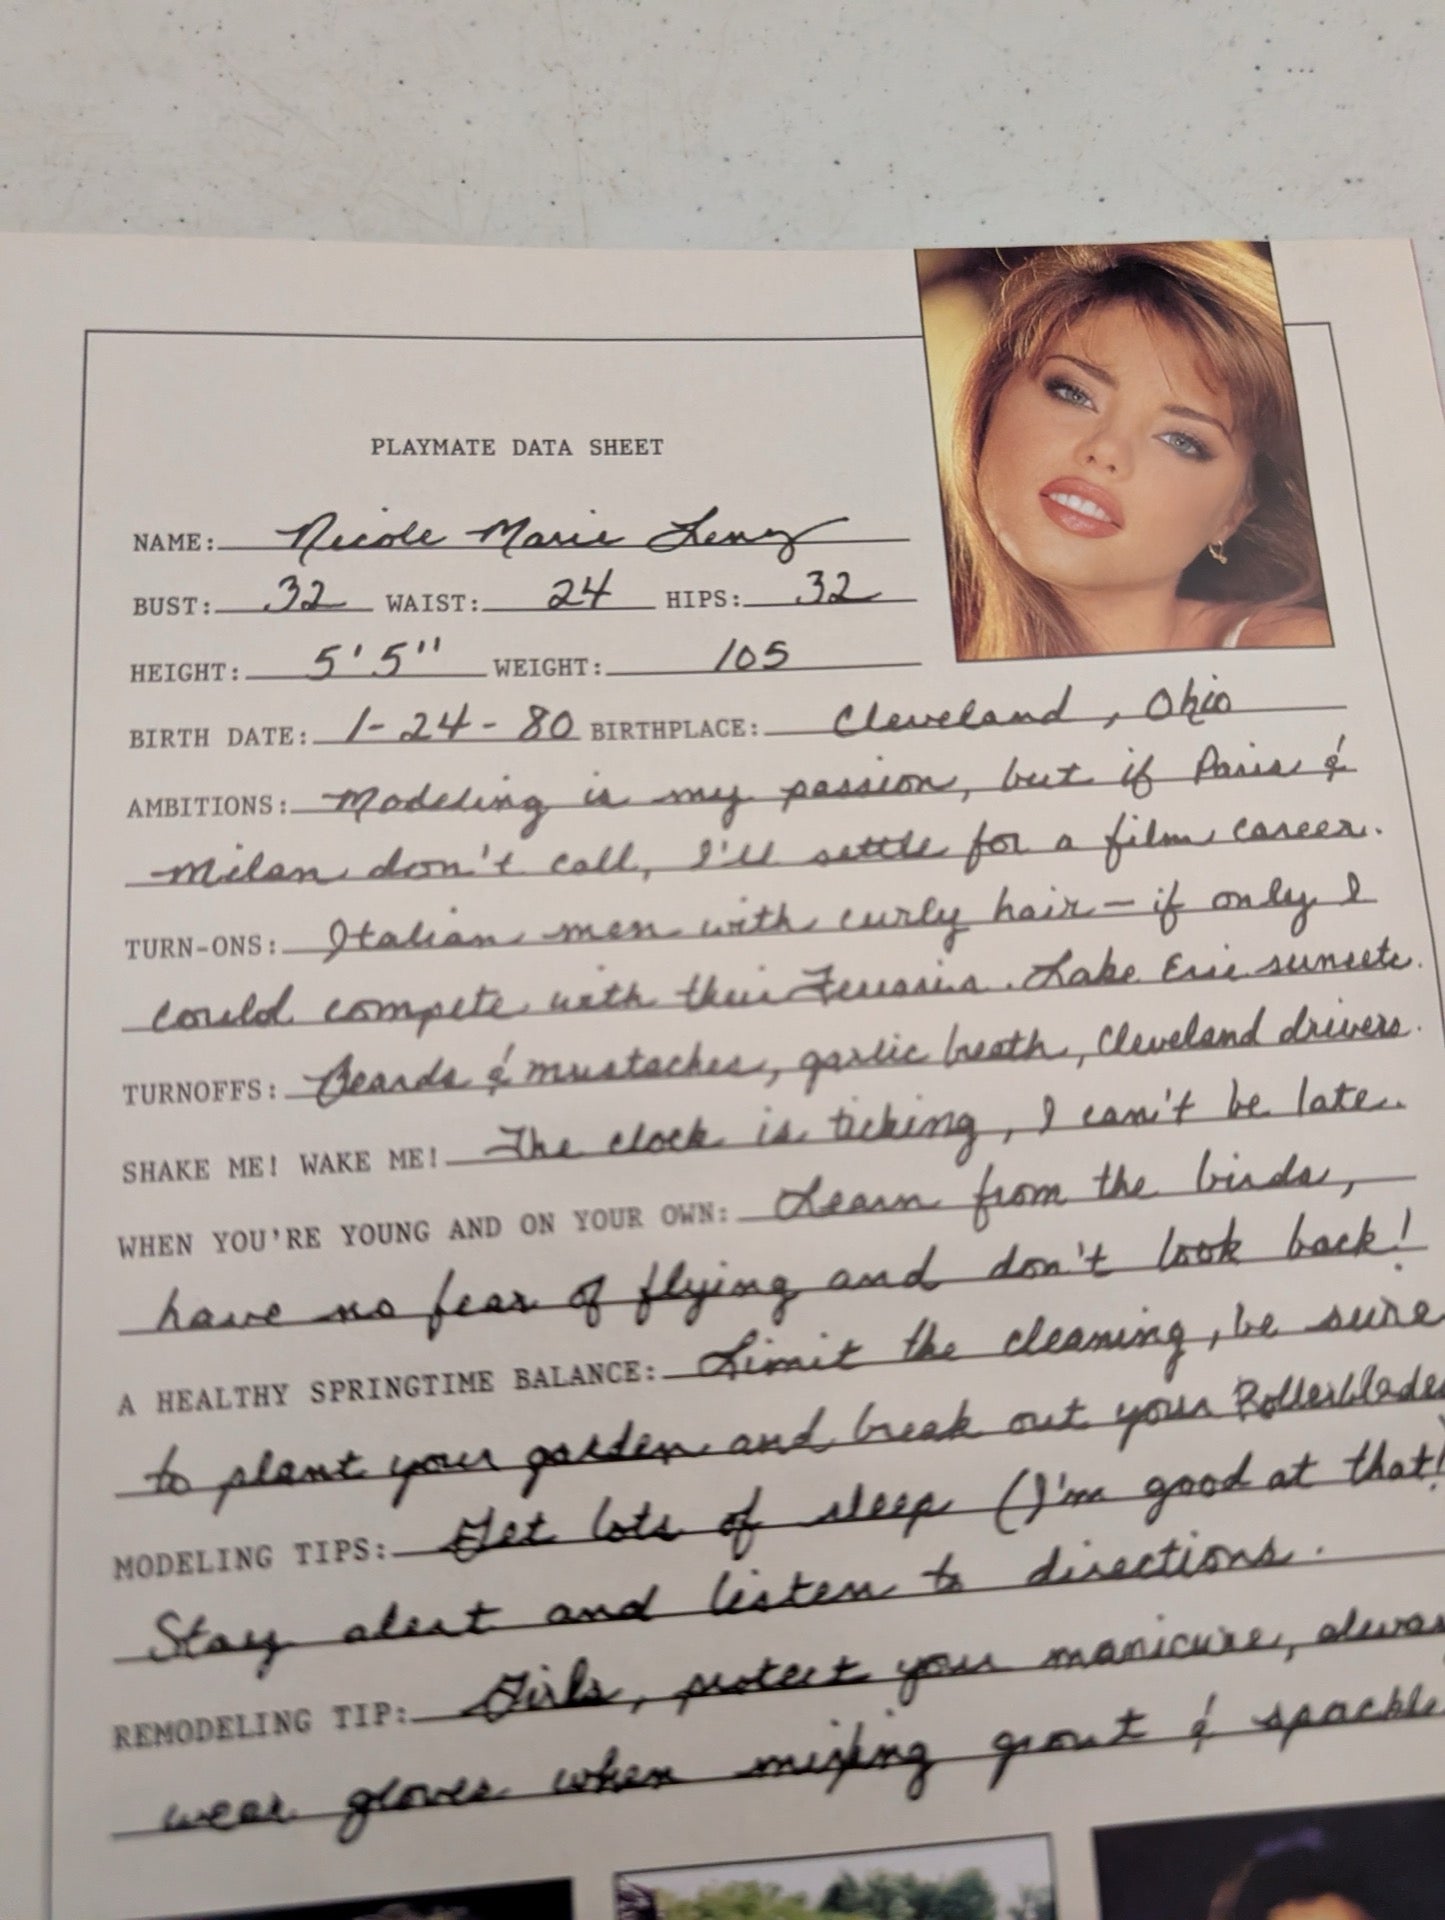 PLAYMATE DATA SHEET
NAME: Nicole Marie Lenz
BUST: 32 WAIST: 24 HIPS: 32
HEIGHT: 5'5" WEIGHT: 105
BIRTH DATE: 1-24-80 BIRTHPLACE: Cleveland, Ohio
AMBITIONS: Modeling is my passion, but if Paris &
Milan don't call, I'll settle for a film career.
TURN-ONS: Italian men with curly hair — if only I
could compete with their Ferraris. Lake Erie sunsets.
TURNOFFS: Beards & mustaches, garlic breath, Cleveland drivers.
SHAKE ME! WAKE ME! The clock is ticking, I can't be late.
WHEN YOU'RE YOUNG AND ON YOUR OWN: Learn from the birds,
have no fear of flying and don't look back!
A HEALTHY SPRINGTIME BALANCE: Limit the cleaning, be sure
to plant your garden and break out your Rollerblades
MODELING TIPS: Get lots of sleep (I'm good at that!
Stay alert and listen to directions.
REMODELING TIP: Girls, protect your manicure, alway
wear gloves when mixing grout & spackle